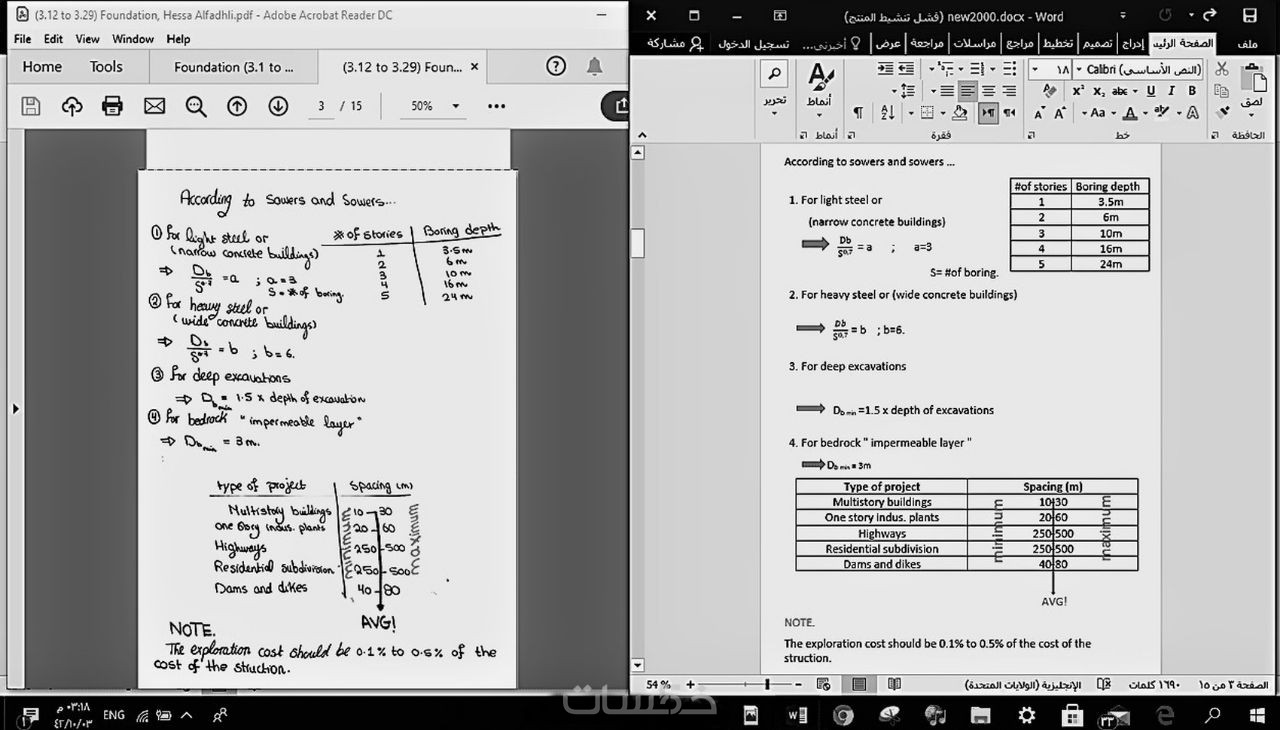 (3.12 to 3.29) Foundation, Hessa Alfadhli.pdf - Adobe Acrobat Reader DC
File Edit View Window Help
Home Tools Foundation (3.1 to ... (3.12 to 3.29) Foun... ×
3 / 15 50%
According to Sowers and Sowers...
① for light steel or
(narrow concrete buildings)
⇒ Db/S^0.7 = a ; a = 3
S = # of boring.
# of stories Boring depth
1 3.5m
2 6m
3 10m
4 16m
5 24m
② for heavy steel or
(wide concrete buildings)
⇒ Db/S^0.7 = b ; b = 6.
③ for deep excavations
⇒ Db min = 1.5 x depth of excavation
④ for bedrock "impermeable layer"
⇒ Db min = 3m.
type of project Spacing (m)
Multistory buildings 10 - 30
one story indus. plants 20 - 60
Highways 250 - 500
Residential subdivision 250 - 500
Dams and dikes 40 - 80
minimum
maximum
AVG!
NOTE.
The exploration cost should be 0.1% to 0.5% of the
cost of the struction.
new2000.docx - Word (فشل تنشيط المنتج)
ملف الصفحة الرئيد إدراج تصميم تخطيط مراجع مراسلات مراجعة عرض أخبرني... تسجيل الدخول مشاركة
لصق
Calibri (النص الأساسي) ١٨
أنماط
تحرير
الحافظة خط فقرة أنماط
According to sowers and sowers ...
1. For light steel or
(narrow concrete buildings)
Db/S^0,7 = a ; a=3
S= #of boring.
#of stories Boring depth
1 3.5m
2 6m
3 10m
4 16m
5 24m
2. For heavy steel or (wide concrete buildings)
Db/S^0,7 = b ; b=6.
3. For deep excavations
Db min =1.5 x depth of excavations
4. For bedrock " impermeable layer "
Db min = 3m
Type of project Spacing (m)
Multistory buildings 10-30
One story indus. plants 20-60
Highways 250-500
Residential subdivision 250-500
Dams and dikes 40-80
minimum
maximum
AVG!
NOTE.
The exploration cost should be 0.1% to 0.5% of the cost of the
struction.
الصفحة ٣ من ١٥ ١٦٩٠ كلمات الإنجليزية (الولايات المتحدة) 54 %
خمسات
ENG
٠٣:١٨ م
٤٢/١٠/٠٣
٢٣